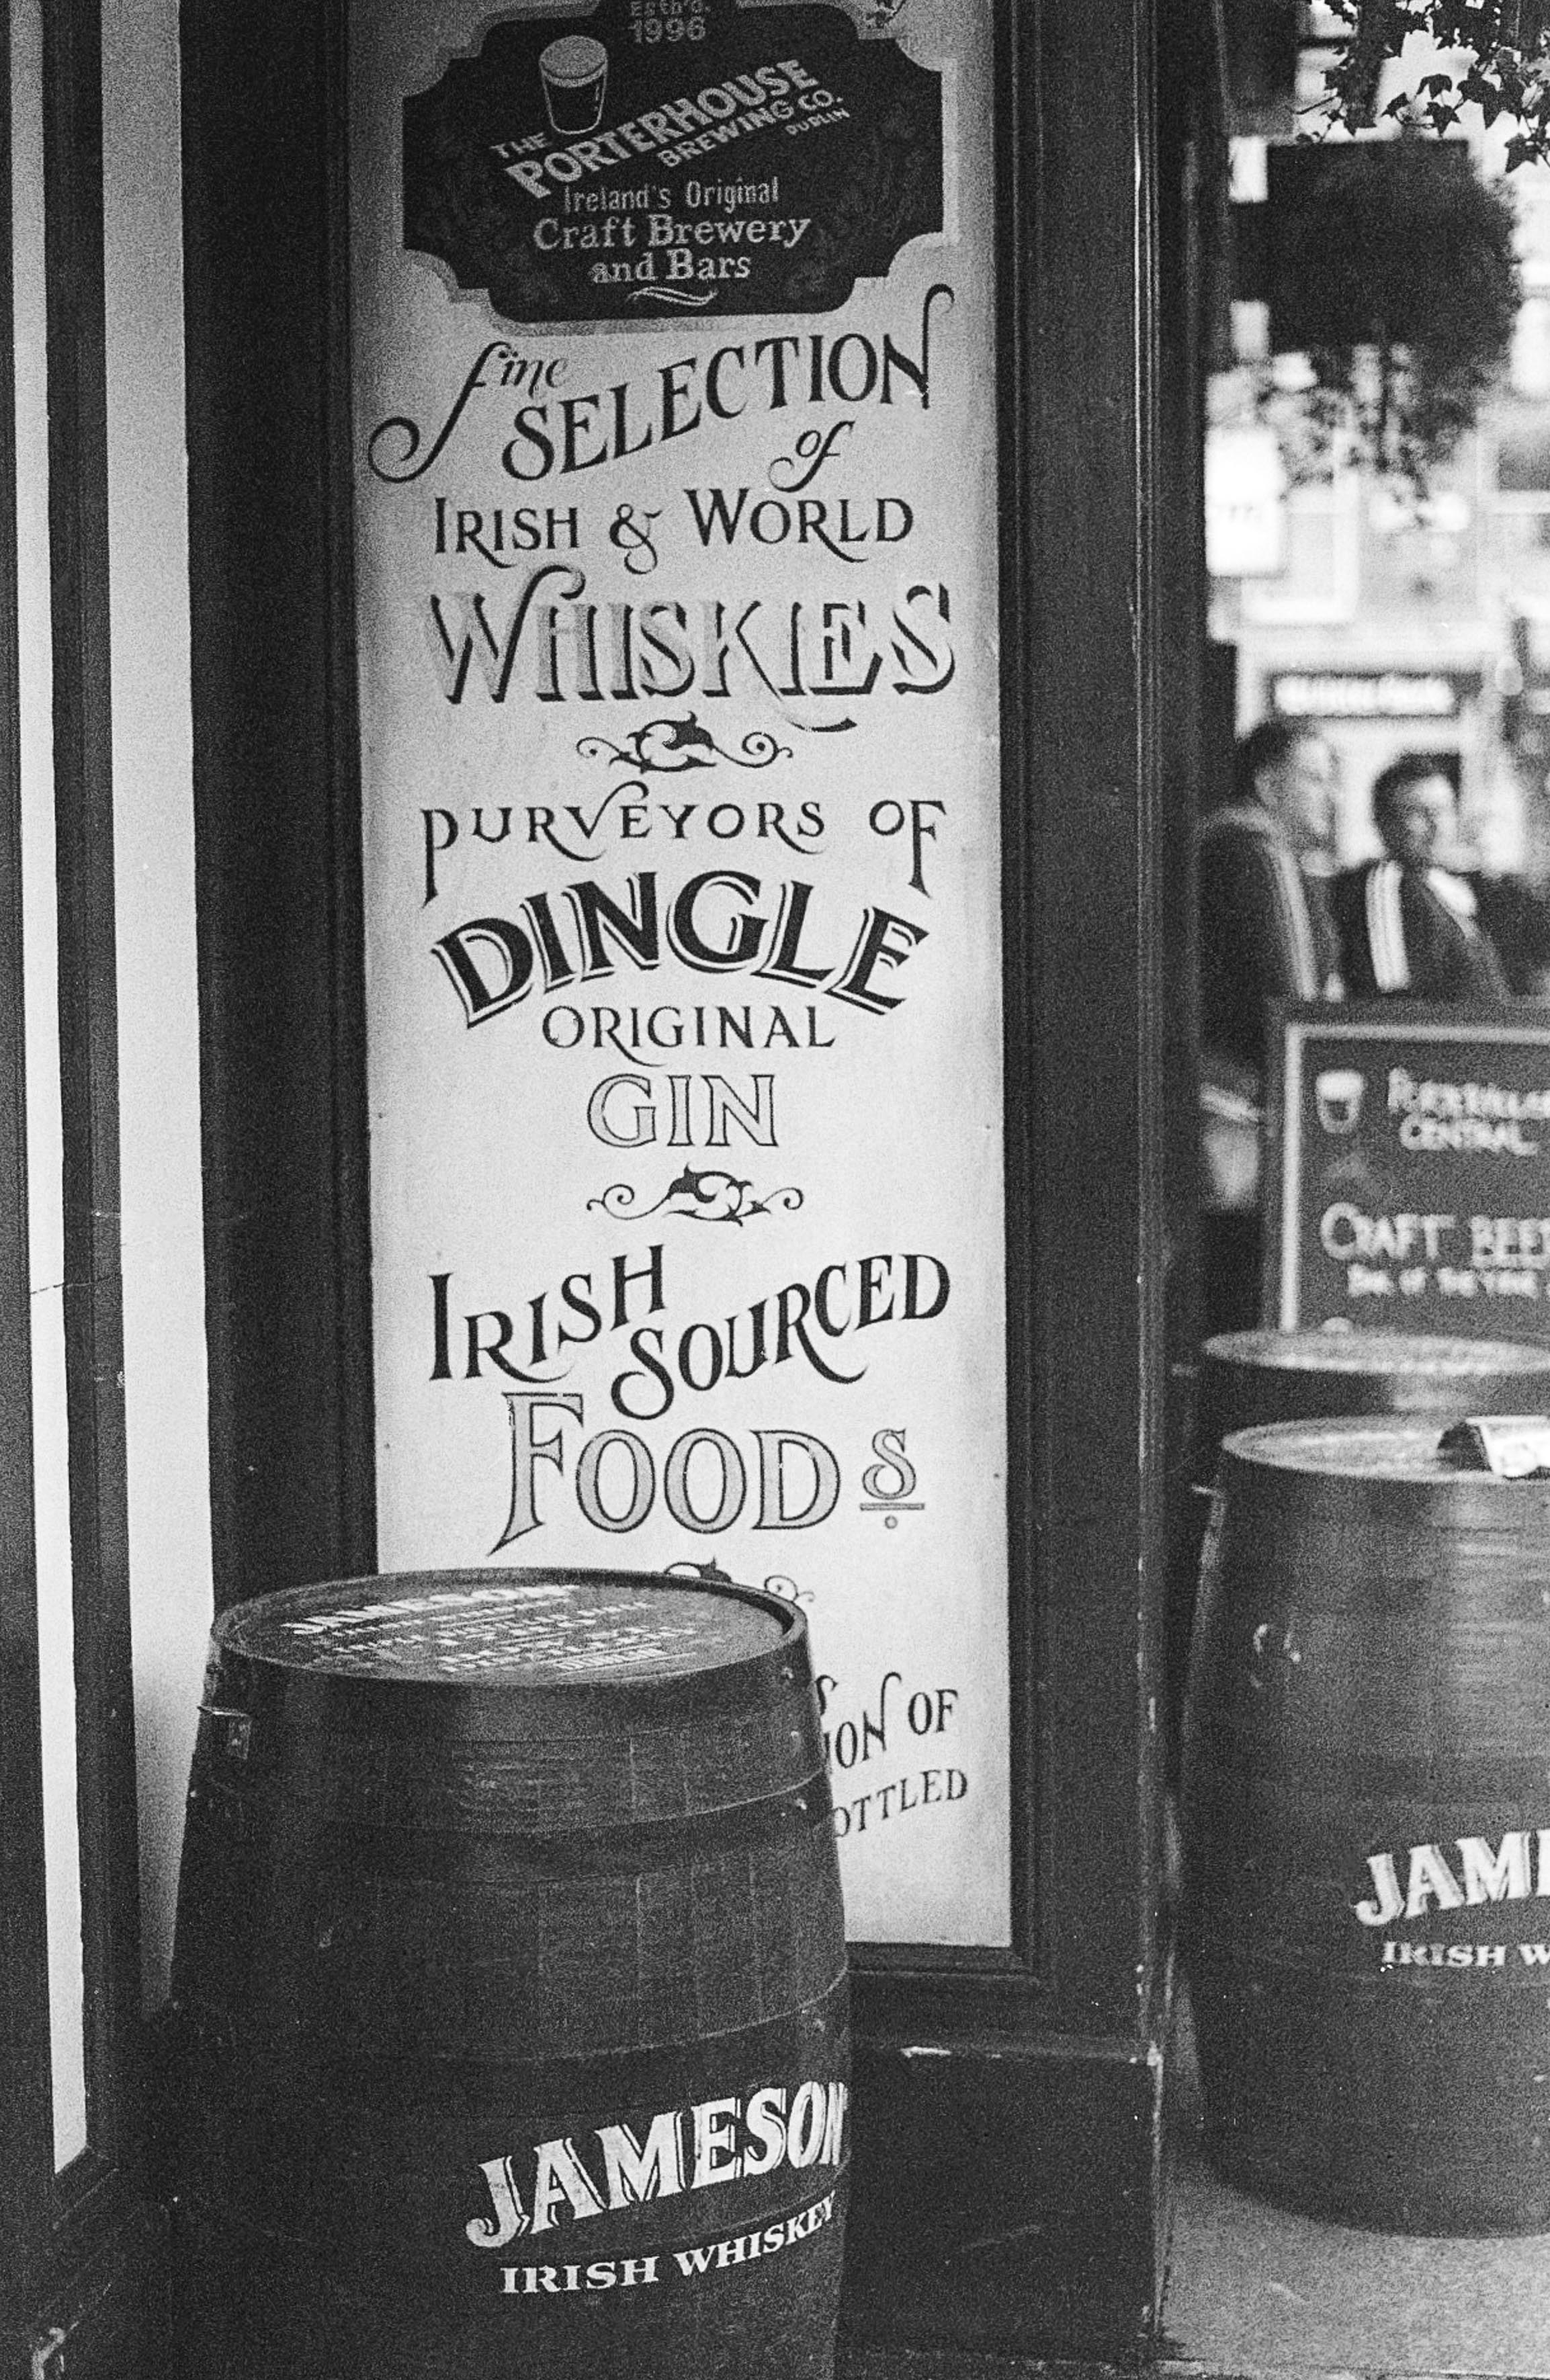 Estb'd.
1996
THE
PORTERHOUSE
BREWING CO.
DUBLIN
Ireland's Original
Craft Brewery
and Bars
fine
SELECTION
of
IRISH & WORLD
WHISKIES
PURVEYORS OF
DINGLE
ORIGINAL
GIN
IRISH
SOURCED
FOODS
OF
JAMESON
JAMESON
IRISH WHISKEY
CENTRAL
CRAFT BEE
JAM
IRISH W